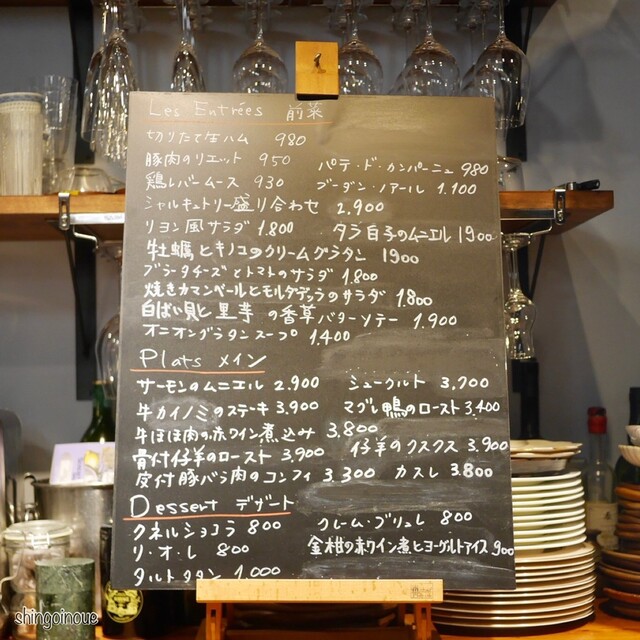 Les Entrées 前菜
切りたて生ハム 980
豚肉のリエット 950
パテ・ド・カンパーニュ 980
鶏レバームース 930
ブーダン・ノアール 1.100
シャルキュトリー盛り合わせ 2.900
リヨン風サラダ 1.800
タラ白子のムニエル 1900
牡蠣とキノコのクリームグラタン 1900
ブラータチーズとトマトのサラダ 1.800
焼きカマンベールとモルタデッラのサラダ 1.800
白ばい貝と里芋の香草バターソテー 1.900
オニオングラタンスープ 1.400
Plats メイン
サーモンのムニエル 2.900
シュークルト 3,700
牛カイノミのステーキ 3,900
マグレ鴨のロースト 3,400
牛ほほ肉の赤ワイン煮込み 3.800
仔羊のクスクス 3.900
骨付仔羊のロースト 3,900
皮付豚バラ肉のコンフィ 3.300
カスレ 3.800
Dessert デザート
クネルショコラ 800
クレーム・ブリュレ 800
リ・オ・レ 800
金柑の赤ワイン煮とヨーグルトアイス 900
タルトタタン 1,000
shingoinoue